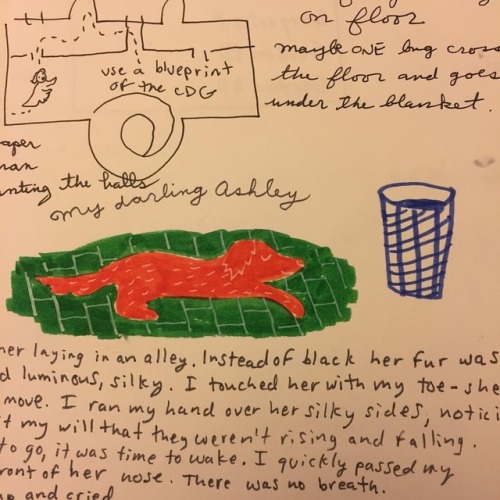 on floor
maybe ONE bug cross
the floor and goes
under the blanket.
use a blueprint
of the CDG
aper
man
unting the halls
my darling Ashley
her laying in an alley. Instead of black her fur was
d luminous, silky. I touched her with my toe - she
move. I ran my hand over her silky sides, notici
t my will that they weren't rising and falling.
to go, it was time to wake. I quickly passed my
ront of her nose. There was no breath.
up and cried